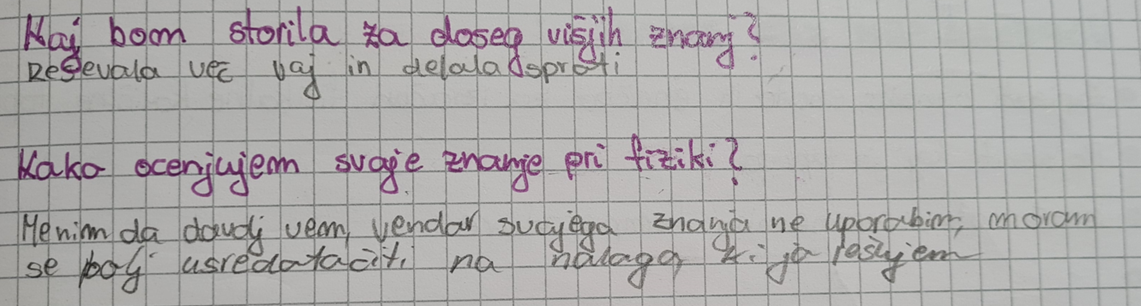 Kaj bom storila za doseg višjih znanj?
Reševala več vaj in delala sproti
Kako ocenjujem svoje znanje pri fiziki?
Menim da dovolj vem, vendar svojega znanja ne uporabim, moram
se bolj usredotočiti na nalogo, ki jo rešujem